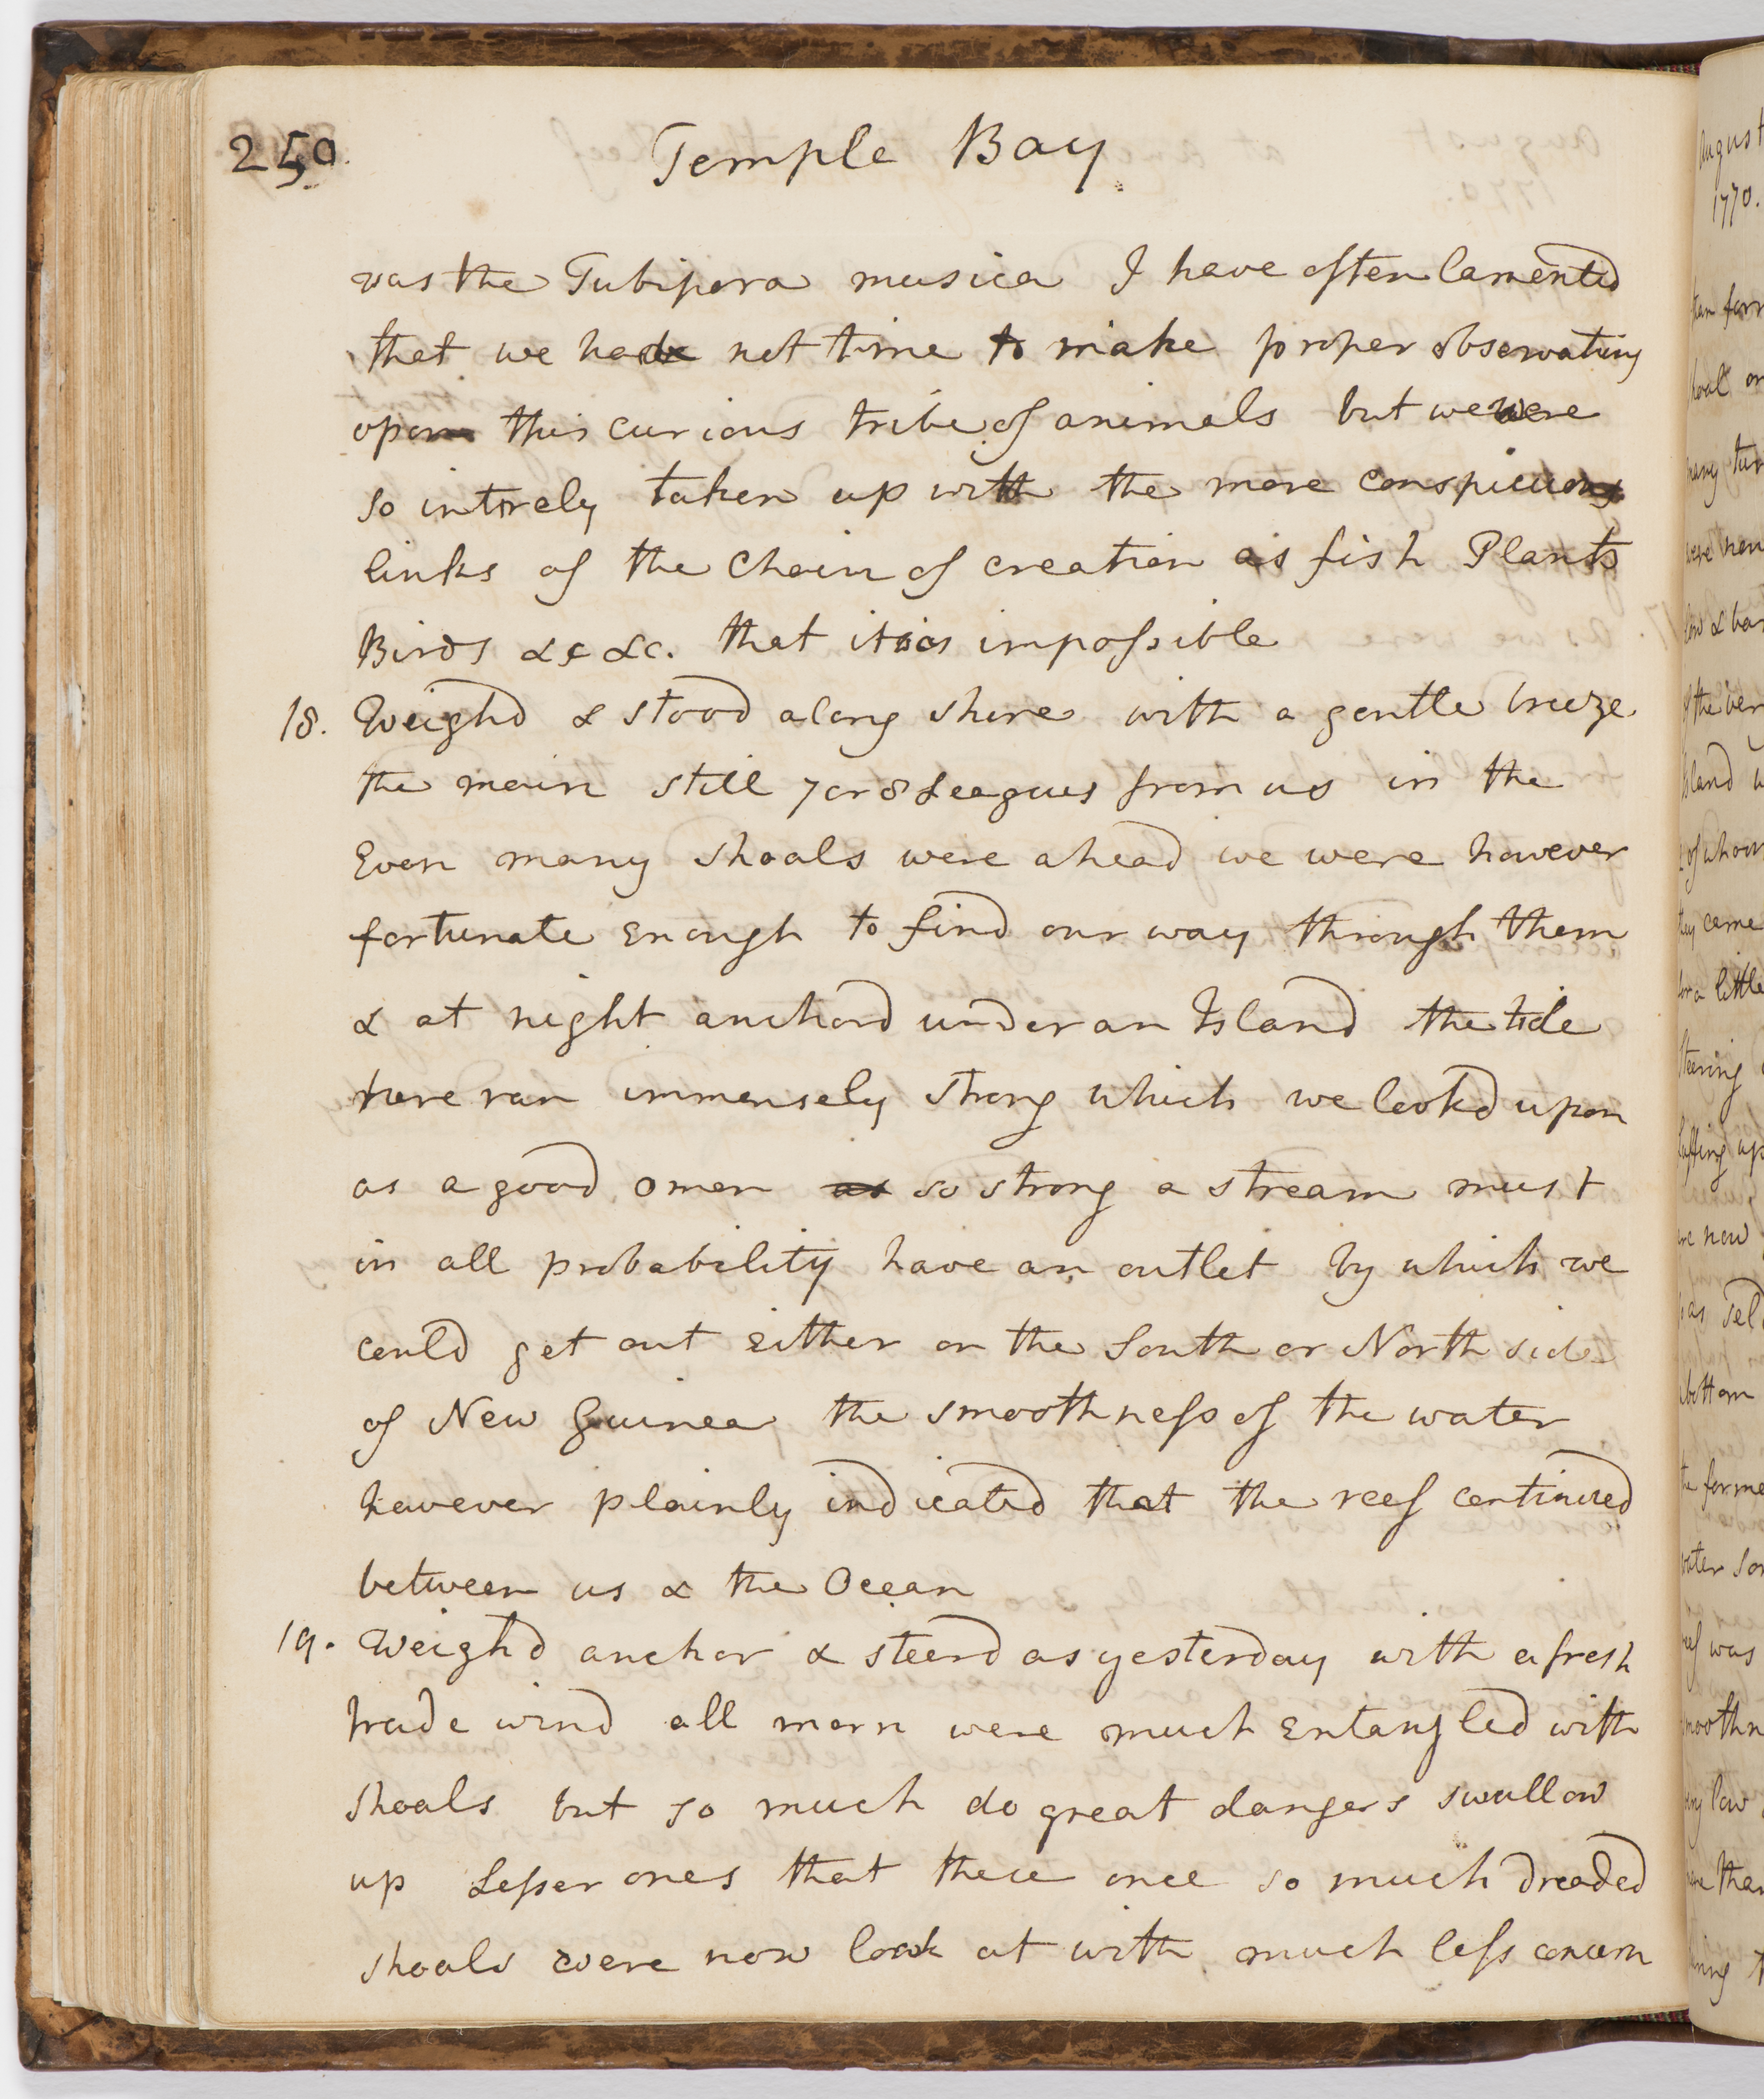 250
Temple Bay
was the Tubipora musica I have often lamented
that we had not time to make proper observations
upon this curious tribe of animals but we were
so intirely taken up with the more conspicuous
links of the chain of creation as fish Plants
Birds &c &c. that it was impossible
18. Weighd & stood along shore with a gentle breeze
the main still 7 or 8 Leagues from us in the
Even many shoals were ahead we were however
fortunate Enough to find our way through them
& at night anchord under an Island the tide
here ran immensely strong which we lookd upon
as a good omen so strong a stream must
in all probability have an outlet by which we
could get out Either on the South or North side
of New Guinea the smoothness of the water
however plainly indicated that the reef continued
between us & the Ocean
19. Weighd anchor & steerd as yesterday with a fresh
trade wind all morn were much Entangled with
Shoals but so much do great dangers swallow
up Lesser ones that these once so much dreaded
shoals were now look at with much less concern
August
1770.